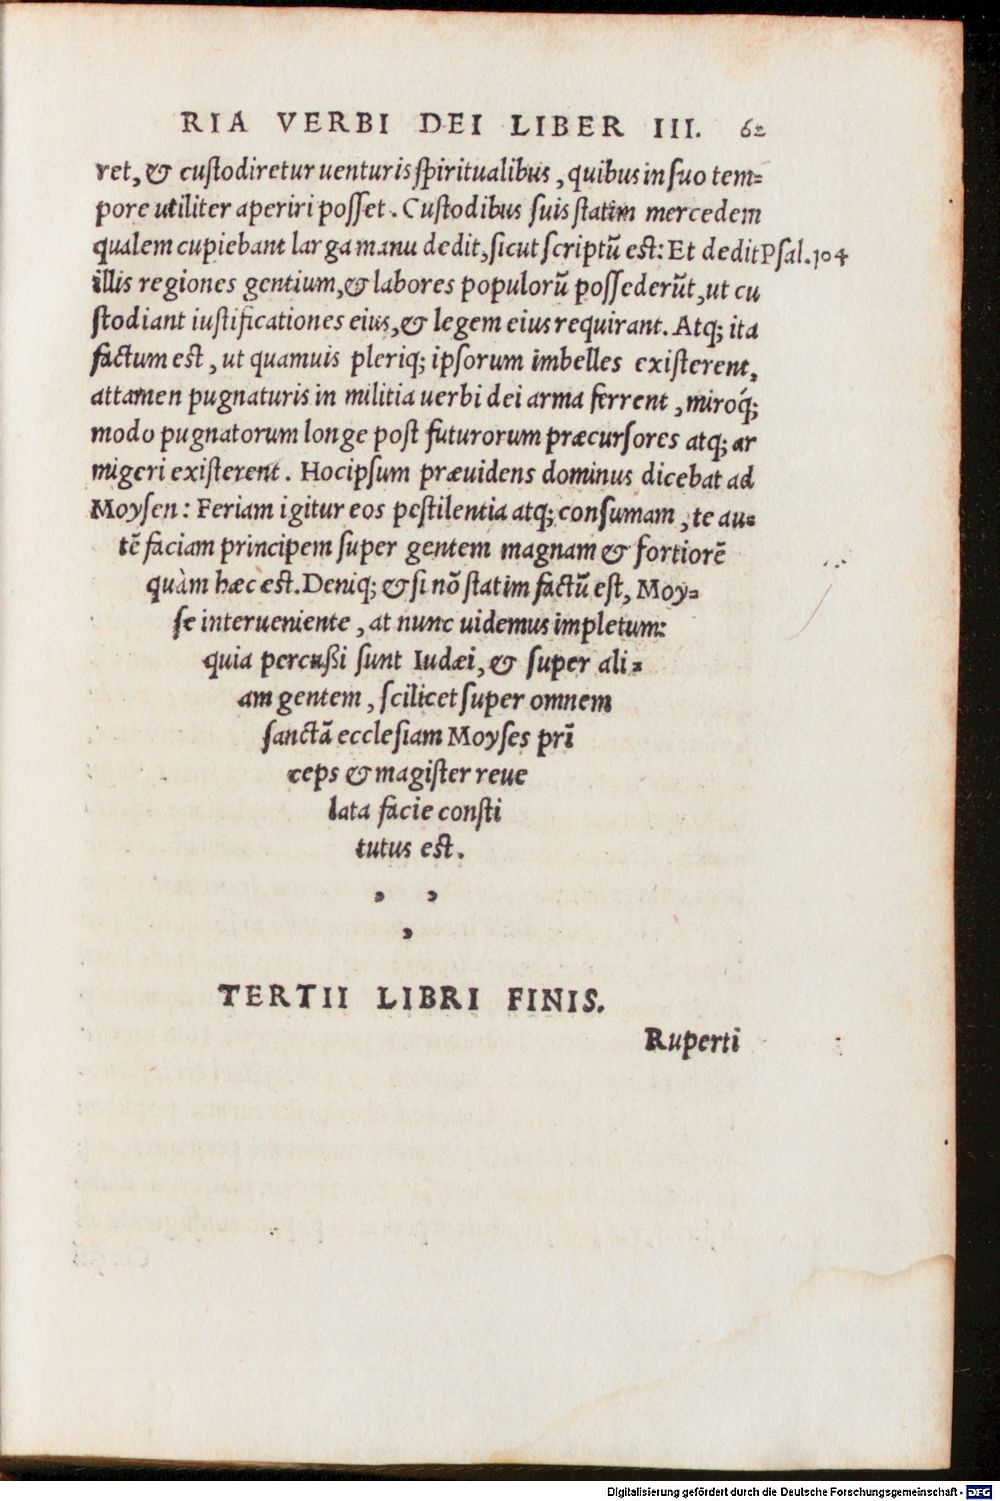 RIA VERBI DEI LIBER III. 62
ret, & custodiretur uenturis spiritualibus, quibus in suo tem=
pore utiliter aperiri posset. Custodibus suis statim mercedem
qualem cupiebant larga manu dedit, sicut scriptū est: Et dedit Psal.104
illis regiones gentium, & labores populorū possederūt, ut cu
stodiant iustificationes eius, & legem eius requirant. Atq; ita
factum est, ut quamuis pleriq; ipsorum imbelles existerent,
attamen pugnaturis in militia uerbi dei arma ferrent, miroq́;
modo pugnatorum longe post futurorum præcursores atq; ar
migeri existerent. Hocipsum præuidens dominus dicebat ad
Moysen: Feriam igitur eos pestilentia atq; consumam, te au=
tē faciam principem super gentem magnam & fortiorē
quàm hæc est. Deniq; & si nō statim factū est, Moy=
se interueniente, at nunc uidemus impletum:
quia percußi sunt Iudæi, & super ali=
am gentem, scilicet super omnem
sanctā ecclesiam Moyses prī
ceps & magister reue
lata facie consti
tutus est.
TERTII LIBRI FINIS.
Ruperti
Digitalisierung gefördert durch die Deutsche Forschungsgemeinschaft - DFG